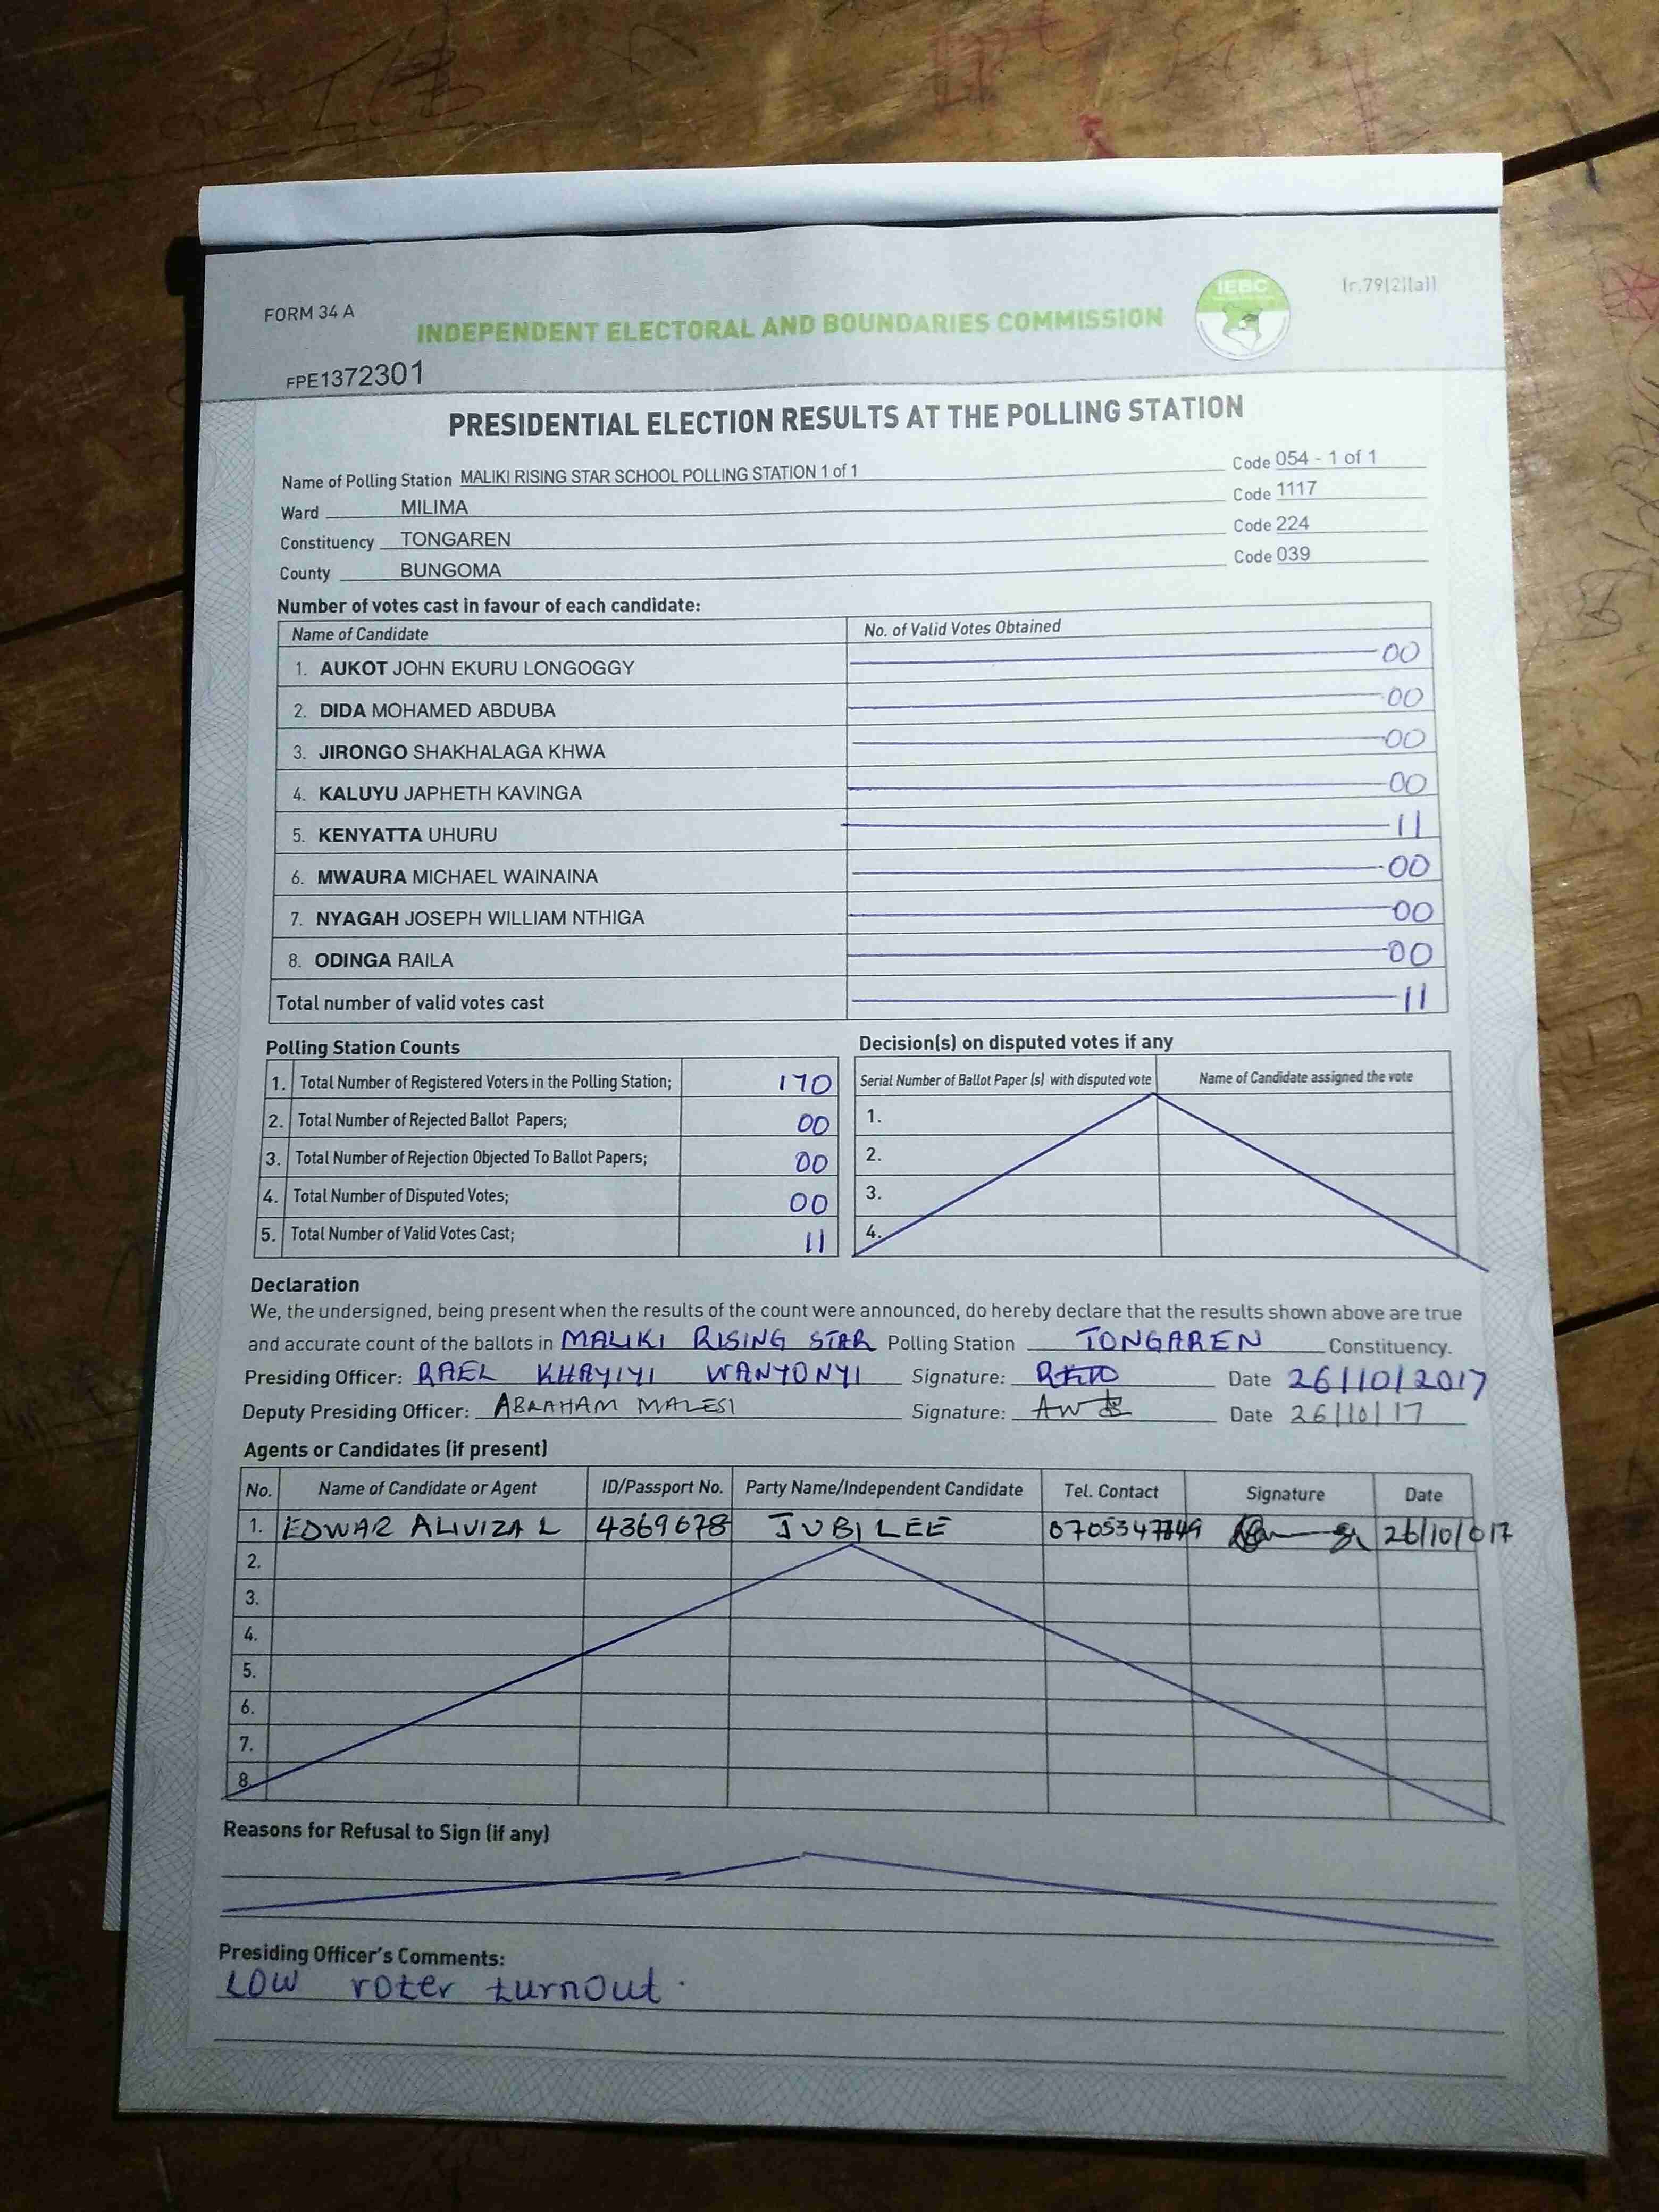 FORM 34 A
INDEPENDENT ELECTORAL AND BOUNDARIES COMMISSION
IEBC
(r.79(2)(a))
FPE1372301
PRESIDENTIAL ELECTION RESULTS AT THE POLLING STATION
Name of Polling Station MALIKI RISING STAR SCHOOL POLLING STATION 1 of 1 Code 054 - 1 of 1
Ward MILIMA Code 1117
Constituency TONGAREN Code 224
County BUNGOMA Code 039
Number of votes cast in favour of each candidate:
Name of Candidate No. of Valid Votes Obtained
1. AUKOT JOHN EKURU LONGOGGY 00
2. DIDA MOHAMED ABDUBA 00
3. JIRONGO SHAKHALAGA KHWA 00
4. KALUYU JAPHETH KAVINGA 00
5. KENYATTA UHURU 11
6. MWAURA MICHAEL WAINAINA 00
7. NYAGAH JOSEPH WILLIAM NTHIGA 00
8. ODINGA RAILA 00
Total number of valid votes cast 11
Polling Station Counts
1. Total Number of Registered Voters in the Polling Station; 170
2. Total Number of Rejected Ballot Papers; 00
3. Total Number of Rejection Objected To Ballot Papers; 00
4. Total Number of Disputed Votes; 00
5. Total Number of Valid Votes Cast; 11
Decision(s) on disputed votes if any
Serial Number of Ballot Paper (s) with disputed vote Name of Candidate assigned the vote
1.
2.
3.
4.
Declaration
We, the undersigned, being present when the results of the count were announced, do hereby declare that the results shown above are true
and accurate count of the ballots in MALIKI RISING STAR Polling Station TONGAREN Constituency.
Presiding Officer: RAEL KHAYIYI WANYONYI Signature: Date 26/10/2017
Deputy Presiding Officer: ABRAHAM MALESI Signature: Date 26/10/17
Agents or Candidates (if present)
No. Name of Candidate or Agent ID/Passport No. Party Name/Independent Candidate Tel. Contact Signature Date
1. EDWAR ALIVIZA L 4369678 JUBILEE 26/10/017
2.
3.
4.
5.
6.
7.
8.
Reasons for Refusal to Sign (if any)
Presiding Officer's Comments:
Low voter turnout.